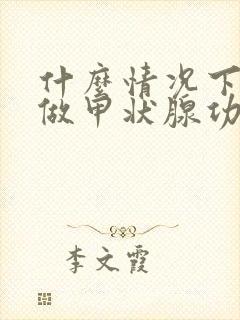 什麼情况下
做甲状腺功
李文霞